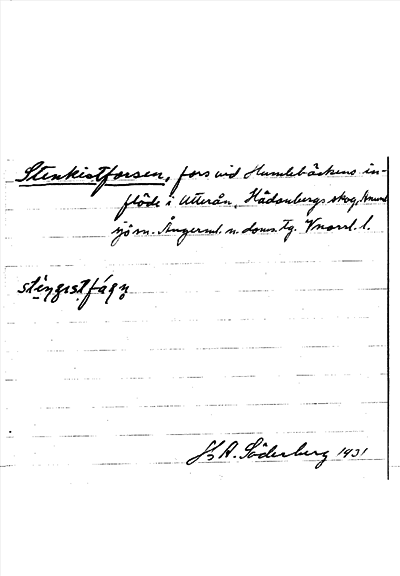 Stenkistforsen, fors vid Humlebäckens in-
flöde i Utterån, Hädanbergs skog, Anund
sjö sn. Ångerml. n. doms.tg. Vnorrl. l.
A. Söderberg 1931